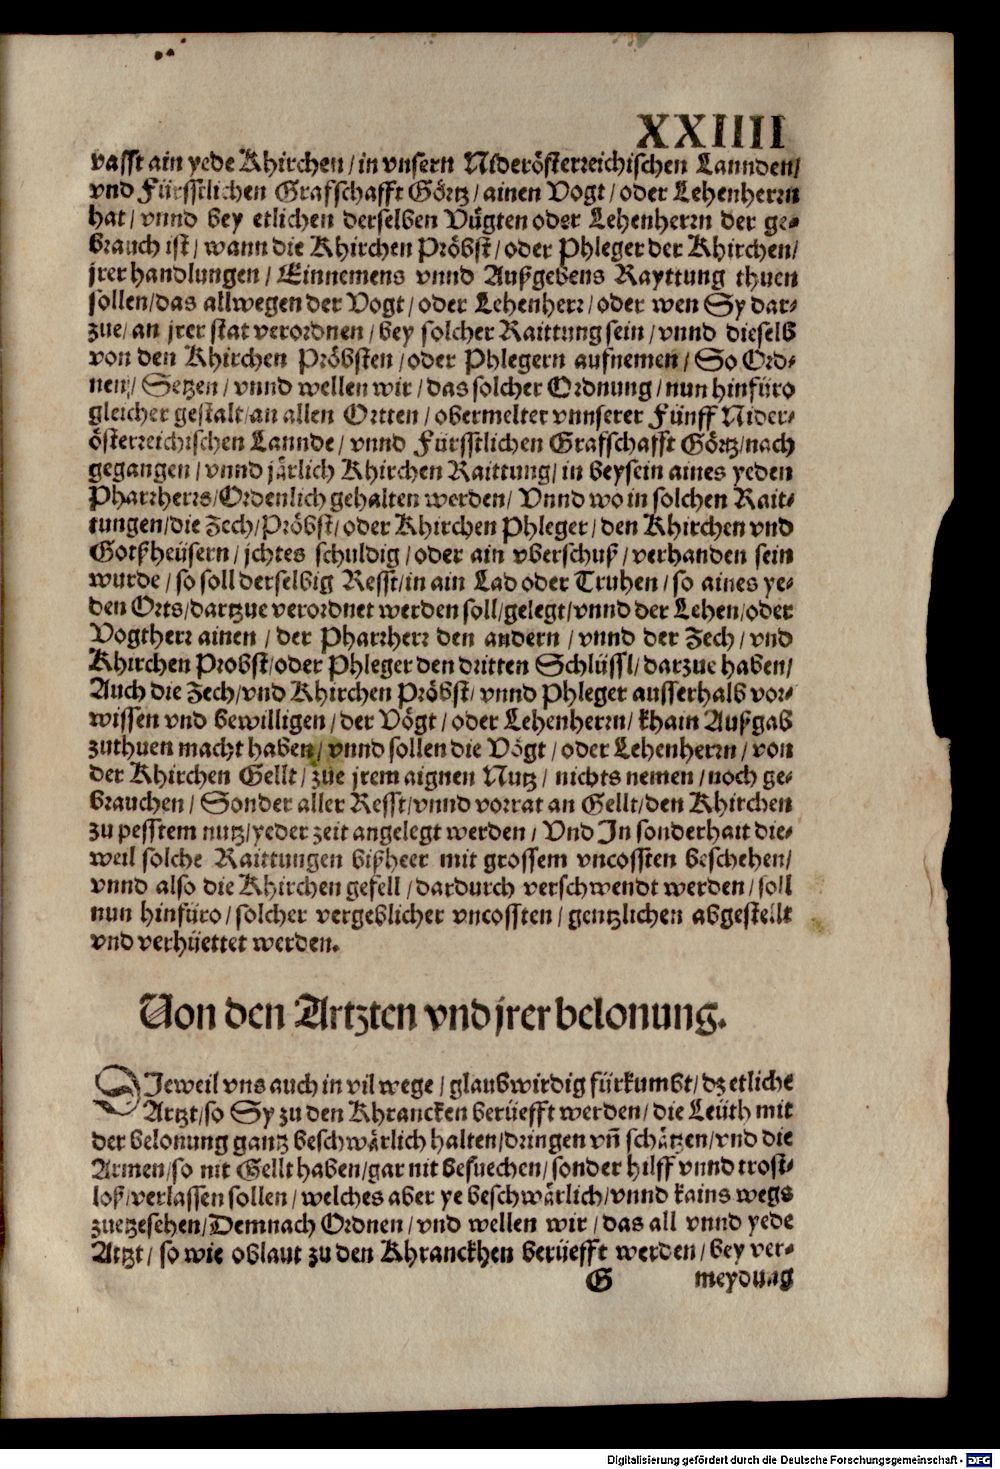 XXIIII
vasst ain yede Khirchen / in vnsern Niderösterreichischen Lannden /
vnd Fürsstlichen Grafschafft Görtz / ainen Vogt / oder Lehenherrn
hat / vnnd bey etlichen derselben Vögten oder Lehenherrn der ge⸗
brauch ist / wann die Khirchen Pröbst / oder Phleger der Khirchen /
jrer handlungen / Einnemens vnnd Außgebens Rayttung thuen
sollen / das allwegen der Vogt / oder Lehenherr / oder wen Sy dar⸗
zue / an jrer stat verordnen / bey solcher Raittung sein / vnnd dieselb
von den Khirchen Pröbsten / oder Phlegern aufnemen / So Ord⸗
nen / Setzen / vnnd wellen wir / das solcher Ordnung / nun hinfüro
gleicher gestalt / an allen Ortten / obermelter vnnserer Fünff Nider⸗
österreichischen Lannde / vnnd Fürsstlichen Grafschafft Görtz / nach
gegangen / vnnd järlich Khirchen Raittung / in beysein aines yeden
Pharrherrs / Ordenlich gehalten werden / Vnnd wo in solchen Rait⸗
tungen / die Zech / Pröbst / oder Khirchen Phleger / den Khirchen vnd
Gotßheüsern / jchtes schuldig / oder ain vberschuß / verhanden sein
wurde / so soll derselbig Resst / in ain Lad oder Truhen / so aines ye⸗
den Orts / dartzue verordnet werden soll / gelegt / vnnd der Lehen / oder
Vogtherr ainen / der Pharrherr den andern / vnnd der Zech / vnd
Khirchen Probst / oder Phleger den dritten Schlüssl / darzue haben /
Auch die Zech / vnd Khirchen Pröbst / vnnd Phleger ausserhalb vor⸗
wissen vnd bewilligen / der Vögt / oder Lehenherrn / khain Außgab
zuthuen macht haben / vnnd sollen die Vögt / oder Lehenherrn / von
der Khirchen Gellt / zue jrem aignen Nutz / nichts nemen / noch ge⸗
brauchen / Sonder aller Resst / vnnd vorrat an Gellt / den Khirchen
zu pesstem nutz / yeder zeit angelegt werden / Vnd In sonderhait die⸗
weil solche Raittungen bißheer mit grossem vncossten beschehen /
vnnd also die Khirchen gefell / dardurch verschwendt werden / soll
nun hinfüro / solcher vergeblicher vncossten / gentzlichen abgestellt
vnd verhüettet werden.
Von den Artzten vnd jrer belonung.
DIeweil vns auch in vil wege / glaubwirdig fürkumbt / dz etliche
Artzt / so Sy zu den Khrancken berüefft werden / die Leüth mit
der belonung gantz beschwärlich halten / dringen vn̄ schätzen / vnd die
Armen / so nit Gellt haben / gar nit besuechen / sonder hilff vnnd trost⸗
loß / verlassen sollen / welches aber ye beschwärlich / vnnd kains wegs
zuetzesehen / Demnach Ordnen / vnd wellen wir / das all vnnd yede
Artzt / so wie oblaut zu den Khranckhen berüefft werden / bey ver⸗
G meydung
Digitalisierung gefördert durch die Deutsche Forschungsgemeinschaft - DFG